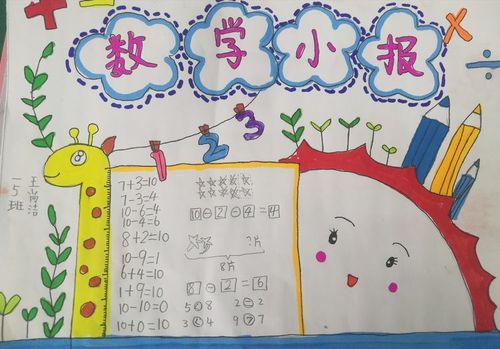 数学小报
1 2 3
一5班
王尚洁
7+3=10
7-3=4
10-6=4
10-4=6
8+2=10
10-9=1
6+4=10
1+9=10
10-10=0
10+0=10
10-2-4=4
?片
8片
8-2=6
5<8 2=2
3<4 9>7